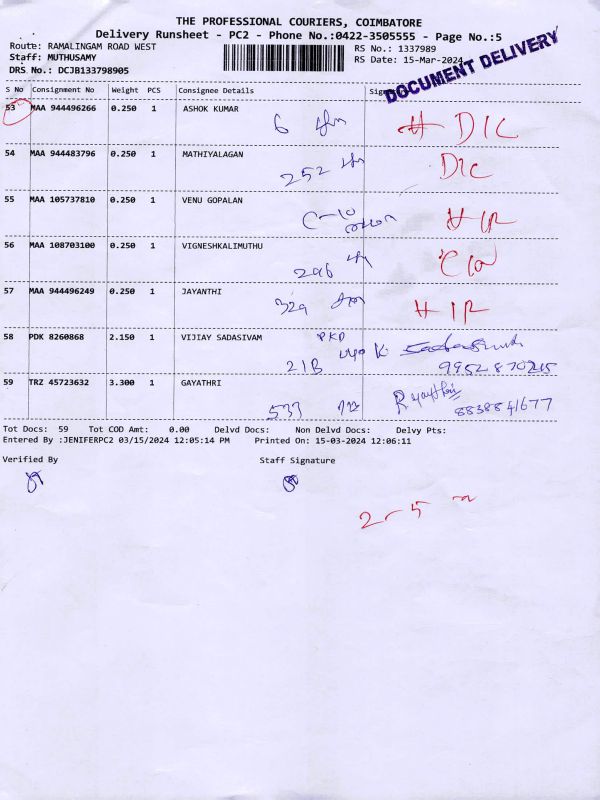 THE PROFESSIONAL COURIERS, COIMBATORE
Delivery Runsheet - PC2 - Phone No.:0422-3505555 - Page No.:5
Route: RAMALINGAM ROAD WEST RS No.: 1337989
Staff: MUTHUSAMY RS Date: 15-Mar-2024
DRS No.: DCJB133798905
DOCUMENT DELIVERY
S No Consignment No Weight PCS Consignee Details
53 MAA 944496266 0.250 1 ASHOK KUMAR
6 D/C
54 MAA 944483796 0.250 1 MATHIYALAGAN
252 D/C
55 MAA 105737810 0.250 1 VENU GOPALAN
C-10
56 MAA 108703100 0.250 1 VIGNESHKALIMUTHU
296
57 MAA 944496249 0.250 1 JAYANTHI
329
58 PDK 8260868 2.150 1 VIJIAY SADASIVAM PKD
21B
59 TRZ 45723632 3.300 1 GAYATHRI
537 8838841677
Tot Docs: 59 Tot COD Amt: 0.00 Delvd Docs: Non Delvd Docs: Delvy Pts:
Entered By :JENIFERPC2 03/15/2024 12:05:14 PM Printed On: 15-03-2024 12:06:11
Verified By Staff Signature
2-5